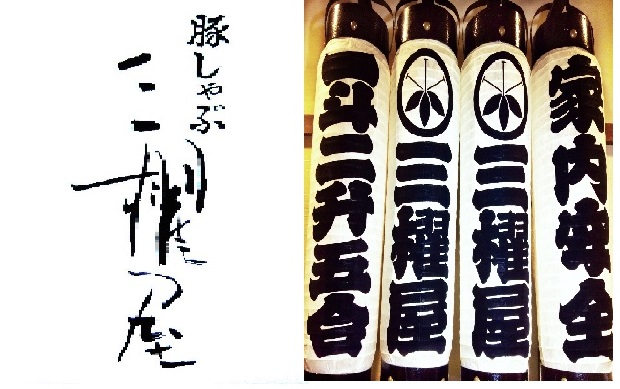 豚しゃぶ
三櫂屋
家内安全
三櫂屋
三櫂屋
一斗二升五合